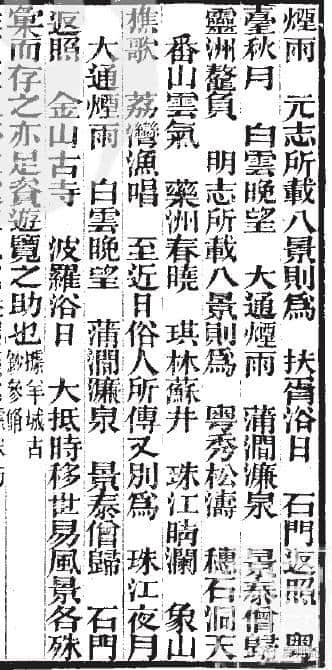 煙雨　元志所載八景則爲　扶胥浴日　石門返照　粵
臺秋月　白雲晚望　大通煙雨　蒲澗濂泉　景泰僧歸
靈洲鰲負　明志所載八景則爲　粵秀松濤　穗石洞天
番山雲氣　藥洲春曉　琪林蘇井　珠江晴瀾　象山
樵歌　荔灣漁唱　至近日俗人所傳又別爲　珠江夜月
大通煙雨　白雲晚望　蒲澗濂泉　景泰僧歸　石門
返照　金山古寺　波羅浴日　大抵時移世易風景各殊
彙而存之亦足資遊覽之助也據羊城古
鈔參脩